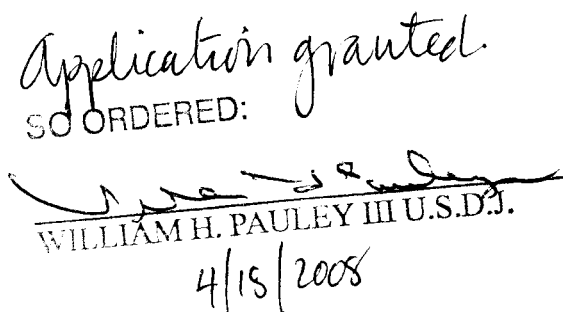 Application granted.
SO ORDERED:
WILLIAM H. PAULEY III U.S.D.J.
4/18/2008